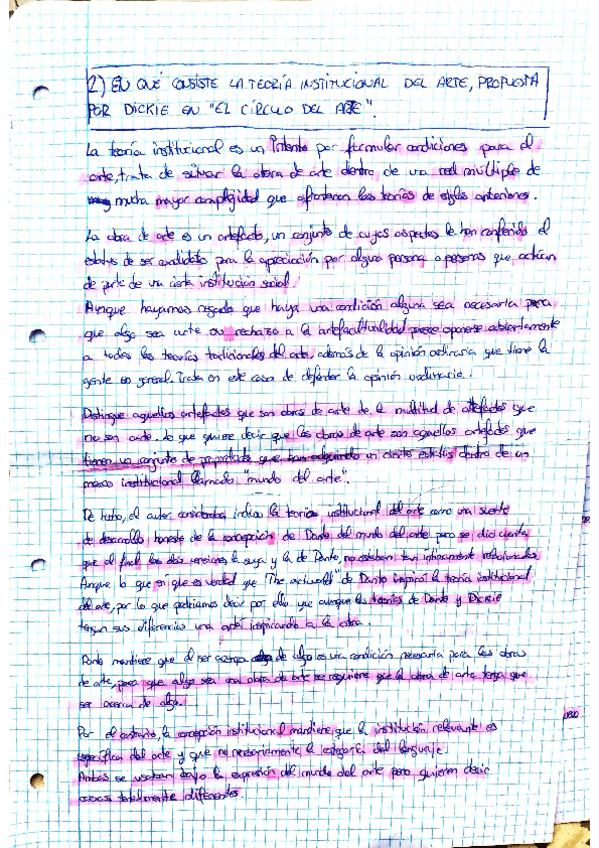 2) EN QUÉ CONSISTE LA TEORÍA INSTITUCIONAL DEL ARTE, PROPUESTA
POR DICKIE EN "EL CÍRCULO DEL ARTE".
La teoría institucional es un intento por formular condiciones para el
arte, trata de situar la obra de arte dentro de una red múltiple de
mucha mayor complejidad que afrontaron las teorías de siglos anteriores.
La obra de arte es un artefacto, un conjunto de cuyos aspectos le han conferido el
estatus de ser candidato para la apreciación por alguna persona o personas que actúan
de parte de una cierta institución social.
Aunque hayamos negado que haya una condición alguna sea necesaria para
que algo sea arte su rechazo a la artefactualidad parece oponerse abiertamente
a todas las teorías tradicionales del arte, además de la opinión ordinaria que tiene la
gente en general. Trata en este caso de defender la opinión ordinaria.
Distingue aquellos artefactos que son obras de arte de la multitud de artefactos que
no son arte. Lo que quiere decir que las obras de arte son aquellos artefactos que
tienen un conjunto de propiedades que han adquirido un cierto estatus dentro de un
marco institucional llamado: "mundo del arte".
De hecho, el autor indica la teoría institucional del arte como una suerte
de desarrollo honesto de la concepción de Danto del mundo del arte pero se dio cuenta
que al final las dos versiones, la suya y la de Danto, no estaban tan íntimamente relacionadas.
Aunque lo que si que es verdad que "The artworld" de Danto inspiró la teoría institucional
del arte, por lo que podríamos decir por ello que aunque las teorías de Danto y Dickie
tengan sus diferencias una está inspirando a la otra.
Danto mantiene que el ser acerca de algo es una condición necesaria para las obras
de arte, para que algo sea una obra de arte se requiere que la obra de arte tenga que
ser acerca de algo.
Por el contrario, la concepción institucional mantiene que la institución relevante es
específica del arte y que no necesariamente la categoría del lenguaje.
Ambas se usaban bajo la expresión del mundo del arte pero quieren decir
cosas totalmente diferentes.